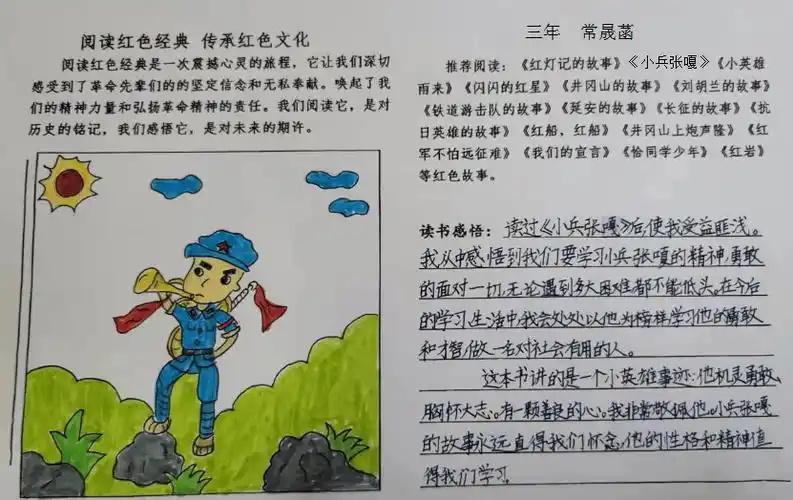 阅读红色经典 传承红色文化
阅读红色经典是一次震撼心灵的旅程，它让我们深切
感受到了革命先辈们的的坚定信念和无私奉献。唤起了我
们的精神力量和弘扬革命精神的责任。我们阅读它，是对
历史的铭记，我们感悟它，是对未来的期许。
三年 常晟菡
推荐阅读：《红灯记的故事》《小兵张嘎》《小英雄
雨来》《闪闪的红星》《井冈山的故事》《刘胡兰的故事》
《铁道游击队的故事》《延安的故事》《长征的故事》《抗
日英雄的故事》《红船，红船》《井冈山上炮声隆》《红
军不怕远征难》《我们的宣言》《恰同学少年》《红岩》
等红色故事。
读书感悟：读过《小兵张嘎》后,使我受益匪浅。
我从中感悟到我们要学习小兵张嘎的精神,勇敢
的面对一切,无论遇到多大困难都不能低头。在今后
的学习,生活中,我会处处以他为榜样学习他的勇敢
和才智,做一名对社会有用的人。
这本书讲的是一个小英雄事迹:他机灵勇敢、
胸怀大志。有一颗善良的心。我非常敬佩他。小兵张嘎
的故事永远直得我们怀念,他的性格和精神值
得我们学习。